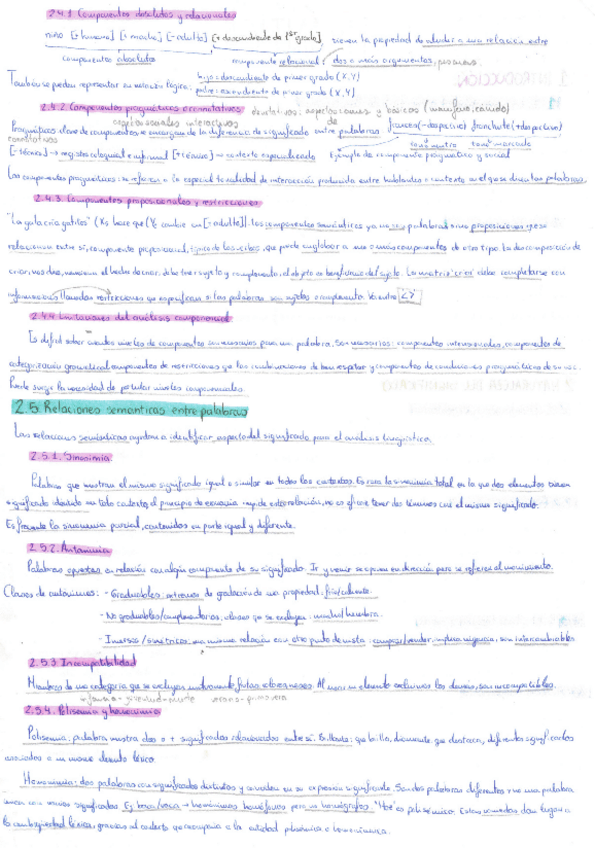 2.4.1 Componentes absolutos y relacionales
niño [+humano] [+macho] [-adulto] [+descendiente de 1er grado] tienen la propiedad de aludir a una relación entre
componentes absolutos componente relacional dos o más argumentos, personas.
También se pueden representar su relación lógica: hijo=descendiente de primer grado (X,Y)
padre=ascendiente de primer grado (X,Y)
2.4.2 Componentes pragmáticos o connotativos
Pragmáticos clase de componentes se encargan de la diferencia de significado entre palabras francés(-despectivo) franchute(+despectivo)
connotativos tono neutro tono marcado
[-técnico]→registro coloquial e informal [+técnico]→contexto especializado Ejemplo de componente pragmático y social
Los componentes pragmáticos: se refieren a la especial totalidad de interacción producida entre hablantes o contexto en el que se dicen las palabras.
2.4.3. Componentes proposicionales y restricciones
"La gata cría gatitos" (X hace que (Y cambie un [-adulto])): los componentes semánticos ya no son palabras sino proposiciones que se
relacionan entre sí, componente proposicional, típico de los verbos, que puede englobar a uno o más componentes de otro tipo. La descomposición de
criar, nos dice, menciona el hecho de criar, debe tener sujeto y complemento, el objeto es beneficiario del sujeto. La matriz 'criar' debe completarse con
informaciones llamadas restricciones que especifican si las palabras son sujetos o complemento. Va entre
2.4.4 Limitaciones del análisis componencial
Es difícil saber cuántos niveles de componentes son necesarios para una palabra. Son necesarios: componentes intensionales, componentes de
categorización gramatical, componentes de restricciones que las combinaciones deben respetar y componentes de condiciones pragmáticas de su uso.
Puede surgir la necesidad de postular niveles componenciales.
2.5. Relaciones semánticas entre palabras
Las relaciones semánticas ayudan a identificar aspectos del significado para el análisis lingüístico.
2.5.1. Sinonimia
Palabras que muestran el mismo significado igual o similar en todos los contextos. Es rara la sinonimia total en la que dos elementos tienen
significado idéntico en todo contexto, el principio de economía impide esta relación, no es eficaz tener dos términos con el mismo significado.
Es frecuente la sinonimia parcial, contenidos en parte igual y diferente.
2.5.2. Antonimia
Palabras opuestas en relación con algún componente de su significado. Ir y venir se oponen en dirección pero se refieren al movimiento.
Clases de antónimos: - Graduables: extremos de gradación de una propiedad: frío/caliente.
- No graduables/complementarios, clases que se excluyen: macho/hembra.
- Inversos/simétricos: una misma relación con otro punto de vista: comprar/vender, implica vigencia, son intercambiables
2.5.3 Incompatibilidad
Miembros de una categoría que se excluyen mutuamente: frutas, colores, meses. Al usar un elemento excluimos los demás, son incompatibles.
2.5.4. Polisemia y homonimia
Polisemia: palabra muestra dos o + significados relacionados entre sí. Brillante: que brilla, diamante, que destaca, diferentes significados
asociados a un mismo elemento léxico.
Homonimia: dos palabras con significados distintos y coinciden en su expresión significante. Son dos palabras diferentes y no una palabra
única con varios significados. Ej: baca/vaca → homónimos homófonos pero no homógrafos. es polisémico. Estas unidades dan lugar a
la ambigüedad léxica, gracias al contexto que acompaña a la entidad polisémica u homonímica.